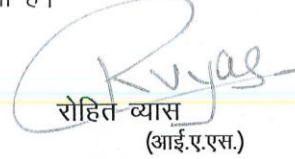 है।
Rvyas
रोहित व्यास
(आई.ए.एस.)